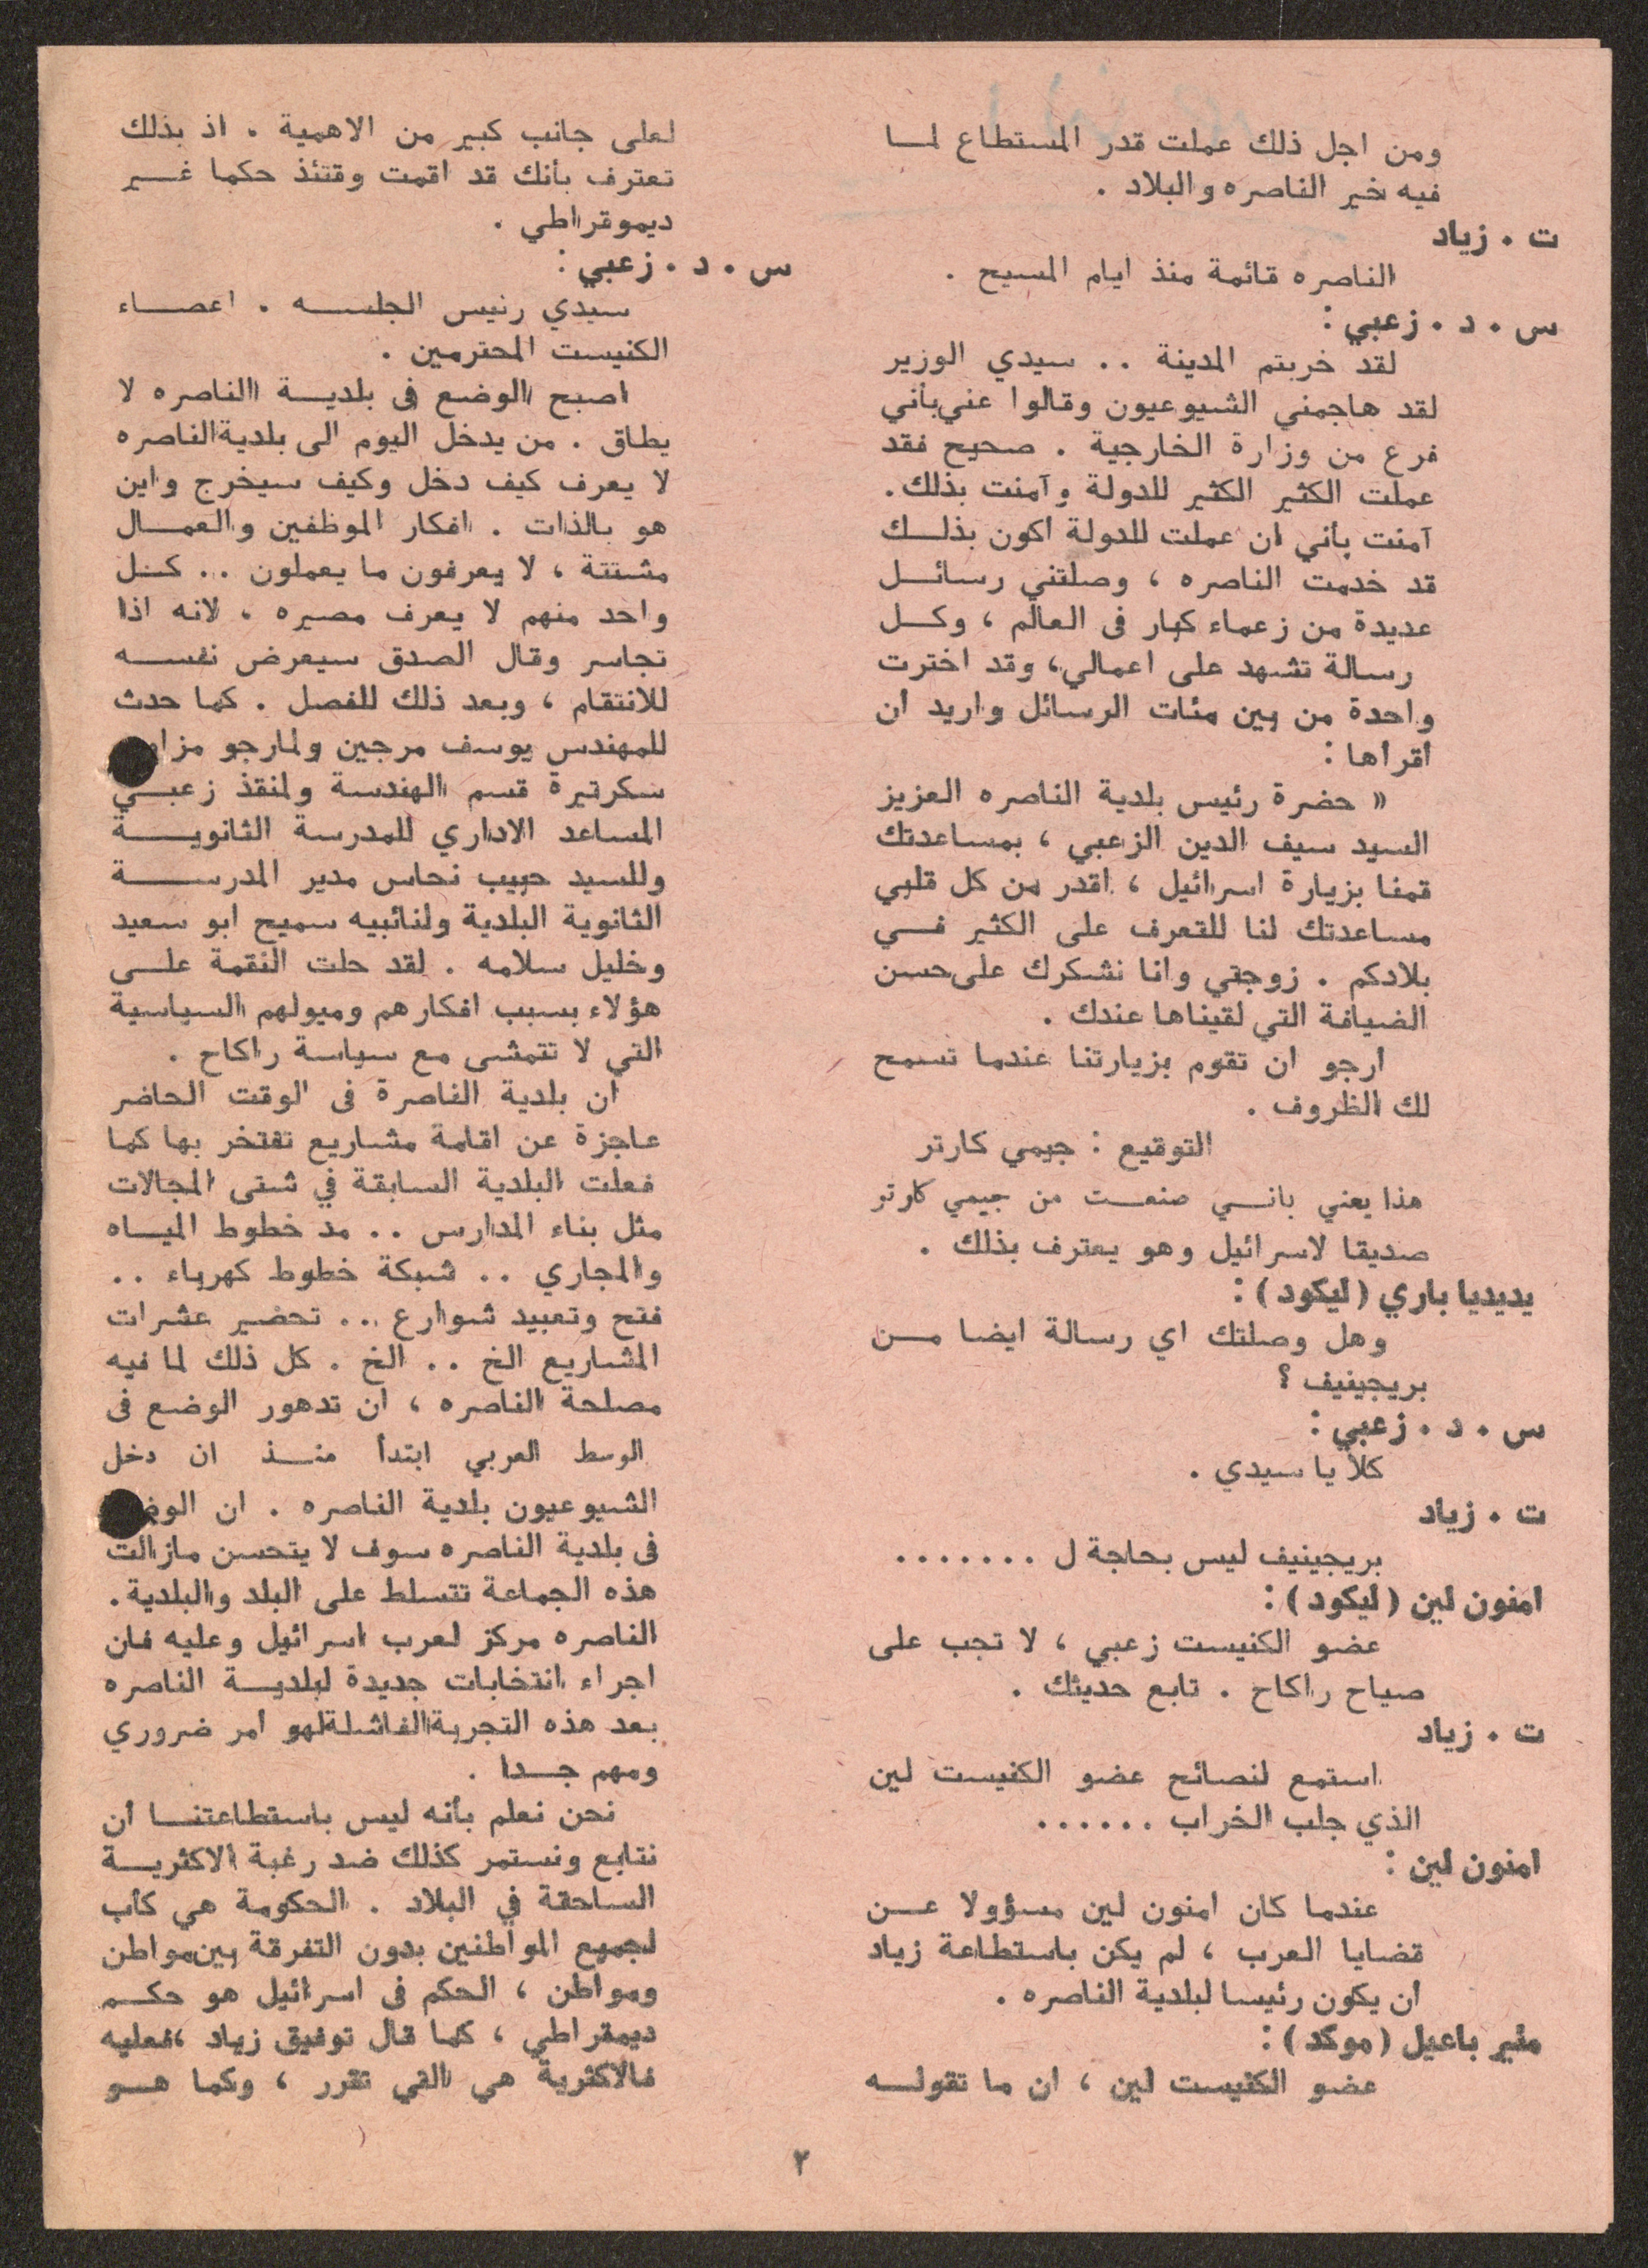 ومن اجل ذلك عملت قدر المستطاع لما
فيه خير الناصره والبلاد .
ت . زياد
الناصره قائمة منذ ايام المسيح .
س . د . زعبي :
لقد خربتم المدينة .. سيدي الوزير
لقد هاجمني الشيوعيون وقالوا عني بأني
فرع من وزارة الخارجية . صحيح فقد
عملت الكثير الكثير للدولة وآمنت بذلك .
آمنت بأني ان عملت للدولة اكون بذلك
قد خدمت الناصره ، وصلتني رسائل
عديدة من زعماء كبار فى العالم ، وكل
رسالة تشهد على اعمالي ، وقد اخترت
واحدة من بين مئات الرسائل واريد أن
أقرأها :
« حضرة رئيس بلدية الناصره العزيز
السيد سيف الدين الزعبي ، بمساعدتك
قمنا بزيارة اسرائيل ، اقدر من كل قلبي
مساعدتك لنا للتعرف على الكثير في
بلادكم . زوجتي وانا نشكرك على حسن
الضيافة التي لقيناها عندك .
ارجو ان تقوم بزيارتنا عندما تسمح
لك الظروف .
التوقيع : جيمي كارتر
هذا يعني باني صنعت من جيمي كارتر
صديقا لاسرائيل وهو يعترف بذلك .
يديديا باري (ليكود) :
وهل وصلتك اي رسالة ايضا من
بريجينيف ؟
س . د . زعبي :
كلا يا سيدي .
ت . زياد
بريجينيف ليس بحاجة ل .......
امنون لين (ليكود) :
عضو الكنيست زعبي ، لا تجب على
صياح راكاح . تابع حديثك .
ت . زياد
استمع لنصائح عضو الكنيست لين
الذي جلب الخراب ......
امنون لين :
عندما كان امنون لين مسؤولا عن
قضايا العرب ، لم يكن باستطاعة زياد
أن يكون رئيسا لبلدية الناصره .
مئير باعيل (موكد) :
عضو الكنيست لين ، ان ما تقوله
لعلى جانب كبير من الاهمية . اذ بذلك
تعترف بأنك قد اقمت وقتئذ حكما غير
ديموقراطي .
س . د . زعبي :
سيدي رئيس الجلسه . اعضاء
الكنيست المحترمين .
اصبح الوضع فى بلدية الناصره لا
يطاق . من يدخل اليوم الى بلدية الناصره
لا يعرف كيف دخل وكيف سيخرج واين
هو بالذات . افكار الموظفين والعمال
مشتتة ، لا يعرفون ما يعملون .. كل
واحد منهم لا يعرف مصيره ، لانه اذا
تجاسر وقال الصدق سيعرض نفسه
للانتقام ، وبعد ذلك للفصل . كما حدث
للمهندس يوسف مرجين ولمارجو
سكرتيرة قسم الهندسة ولمنقذ زعبي
المساعد الاداري للمدرسة الثانوية
وللسيد حبيب نحاس مدير المدرسة
الثانوية البلدية ولنائبيه سميح ابو سعيد
وخليل سلامه . لقد حلت النقمة على
هؤلاء بسبب افكارهم وميولهم السياسية
التي لا تتمشى مع سياسة راكاح .
ان بلدية الناصرة فى الوقت الحاضر
عاجزة عن اقامة مشاريع تفتخر بها كما
فعلت البلدية السابقة في شتى المجالات
مثل بناء المدارس .. مد خطوط المياه
والمجاري .. شبكة خطوط كهرباء ..
فتح وتعبيد شوارع .. تحضير عشرات
المشاريع الخ .. الخ . كل ذلك لما فيه
مصلحة الناصره ، ان تدهور الوضع فى
الوسط العربي ابتدأ منذ ان دخل
الشيوعيون بلدية الناصره . ان
فى بلدية الناصره سوف لا يتحسن مازالت
هذه الجماعة تتسلط على البلد والبلدية .
الناصره مركز لعرب اسرائيل وعليه فان
اجراء انتخابات جديدة لبلدية الناصره
بعد هذه التجربة الفاشلة لهو أمر ضروري
ومهم جدا .
نحن نعلم بأنه ليس باستطاعتنا أن
نتابع ونستمر كذلك ضد رغبة الاكثرية
الساحقة في البلاد . الحكومة هي كأب
لجميع المواطنين بدون التفرقة بين مواطن
ومواطن ، الحكم فى اسرائيل هو حكم
ديمقراطي ، كما قال توفيق زياد ، فعليه
فالاكثرية هي التي تقرر ، وكما هو
٢